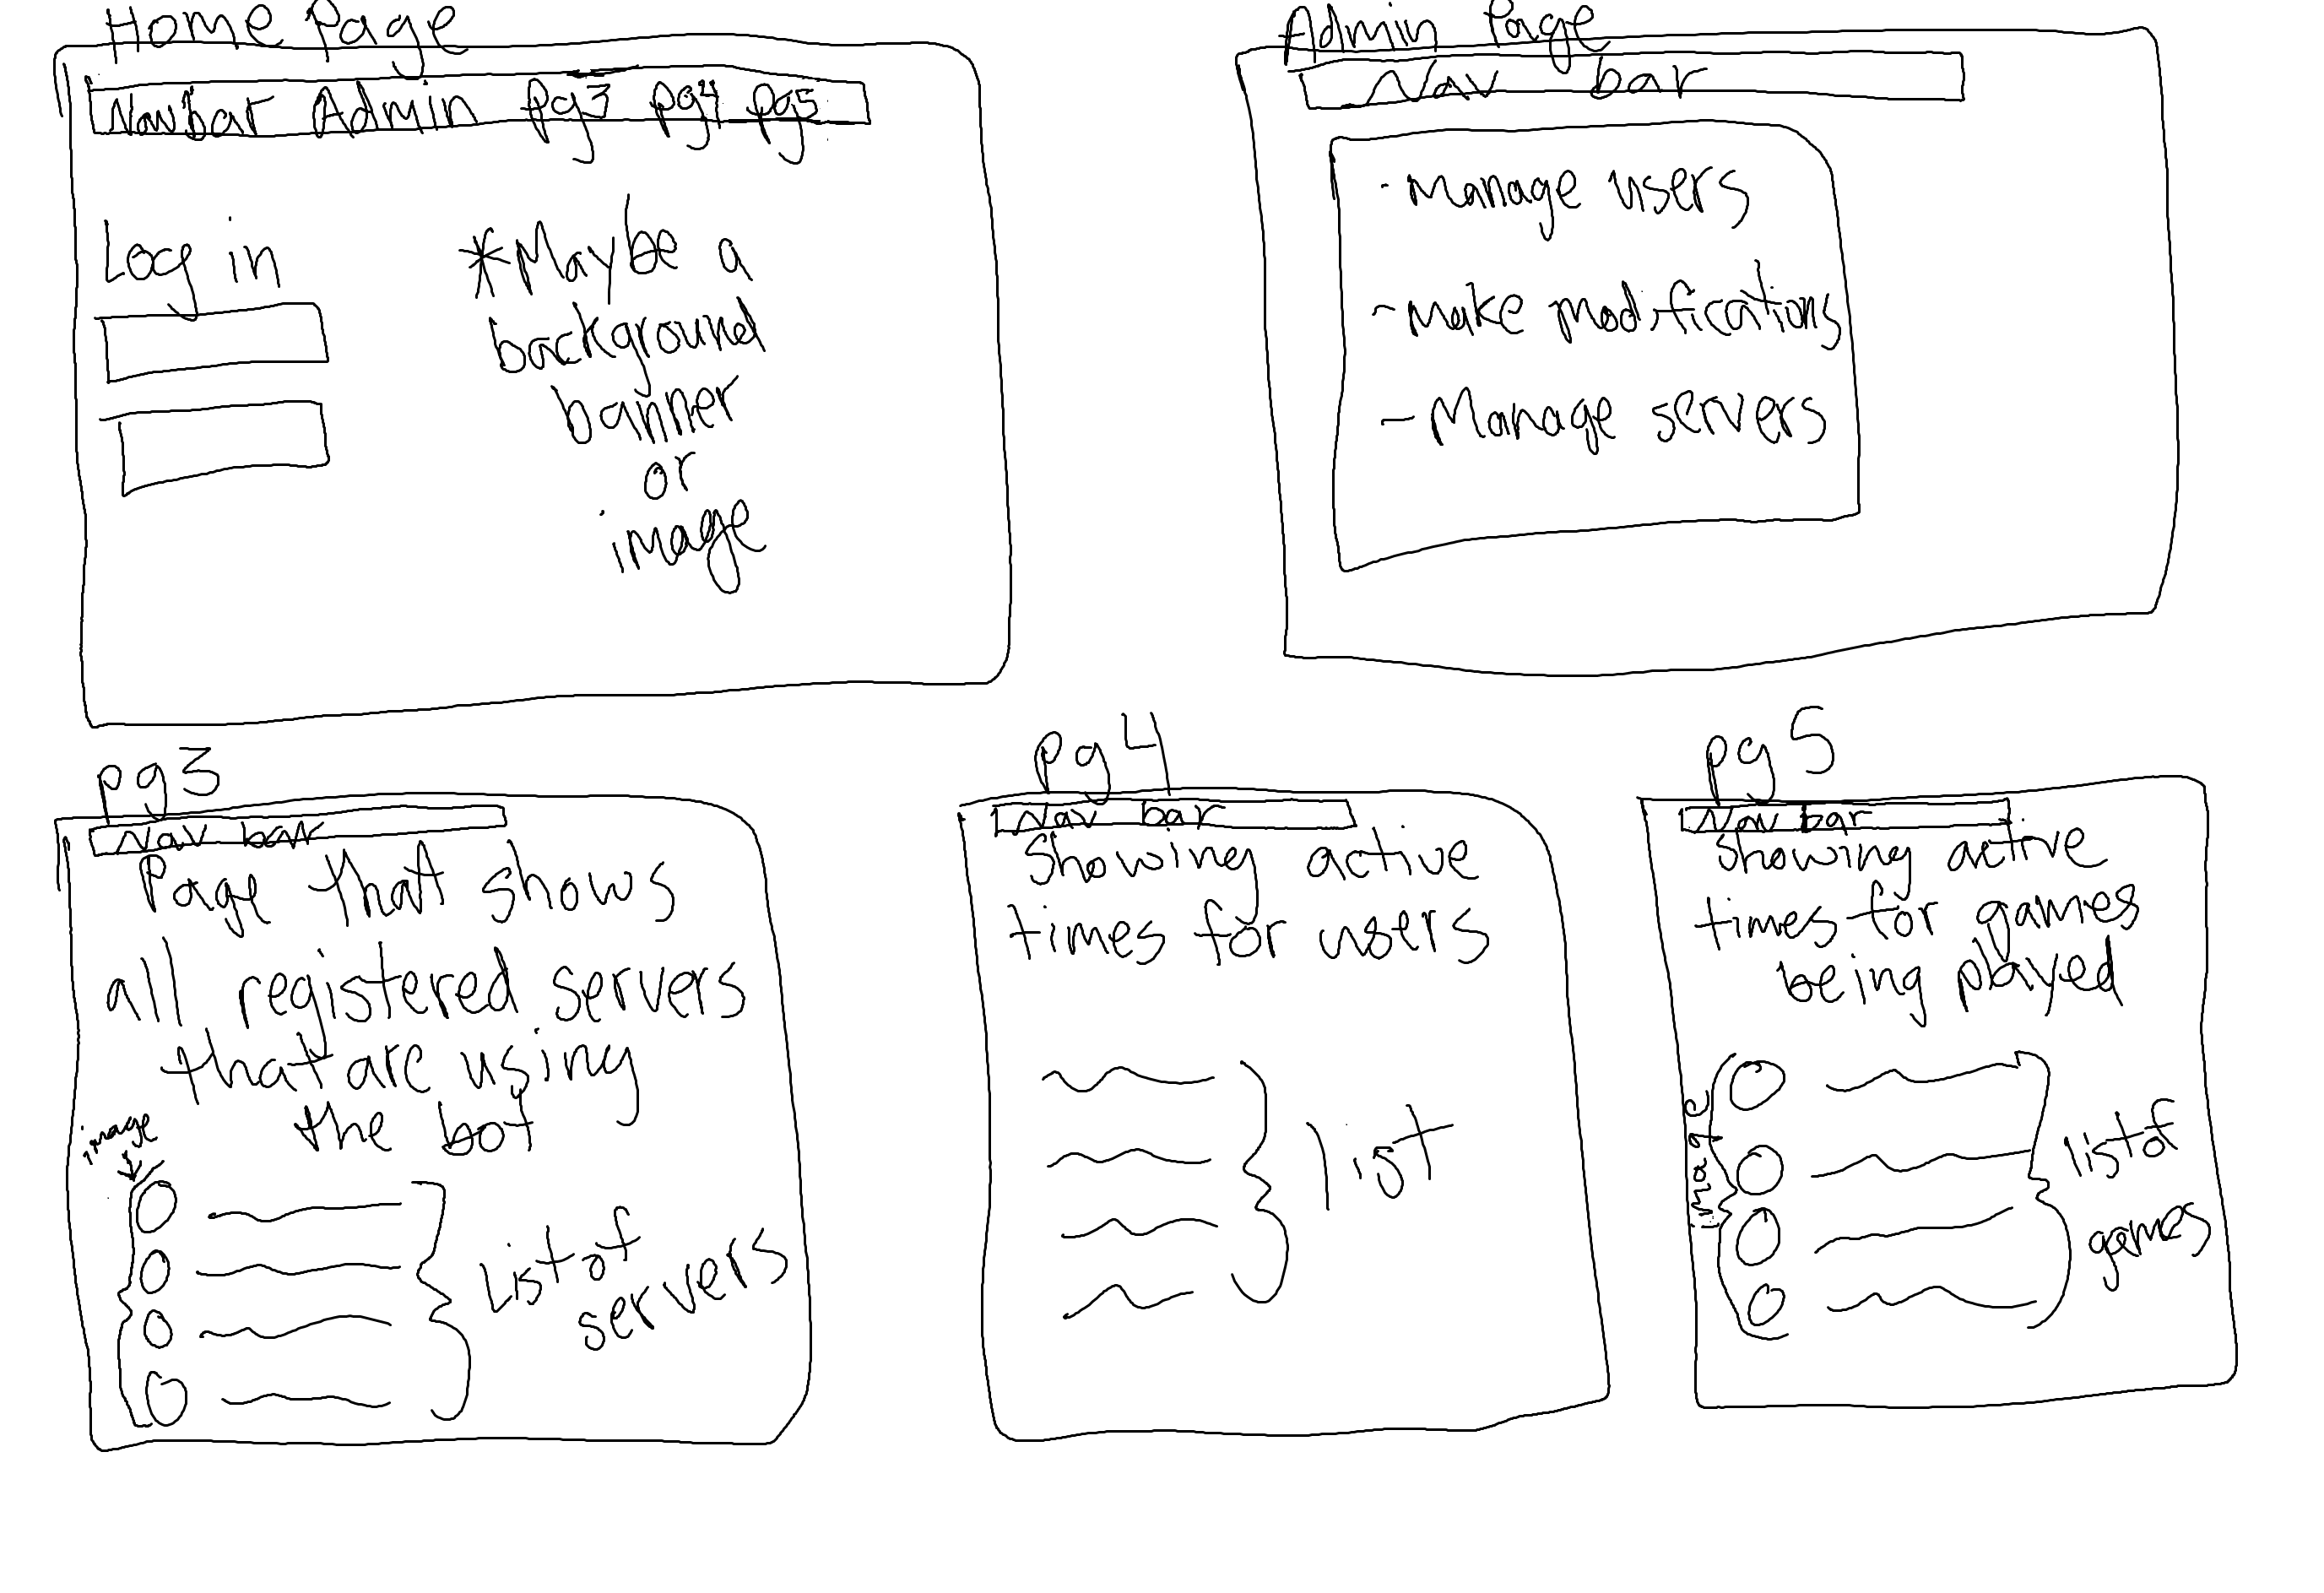 Home Page
Navbar Admin pg3 pg4 pg5
Log in
*Maybe a
background
banner
or
image
Admin Page
Nav bar
- Manage users
- Make modifications
- Manage servers
pg3
Nav bar
Page that shows
all registered servers
that are using
the bot
image
List of
servers
pg4
Nav bar
Showing active
times for users
list
pg5
Nav bar
Showing active
times for games
being played
image
list of
games